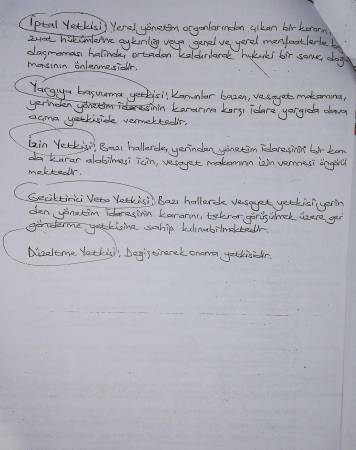 İptal Yetkisi; Yerel yönetim organlarından çıkan bir kararın,
zuat hükümlerine aykırılığı veya genel ve yerel menfaatlerle b
daşmaması halinde, ortadan kaldırılarak hukuki bir sonuç doğu
masının önlenmesidir.
Yargıya başvurma yetkisi; Kanunlar bazen, vesayet makamına,
yerinden yönetim idaresinin kararına karşı idare yargıda dava
açma yetkiside vermektedir.
İzin Yetkisi; Bazı hallerde, yerinden yönetim idaresinin bir kon
da karar alabilmesi için, vesayet makamının izin vermesi öngörül
mektedir.
Geciktirici Veto Yetkisi; Bazı hallerde vesayet yetkisi yerin
den yönetim idaresinin kararını, tekrar görüşülmek üzere geri
gönderme yetkisine sahip kılınabilmektedir.
Düzeltme Yetkisi; Değiştirerek onama yetkisidir.